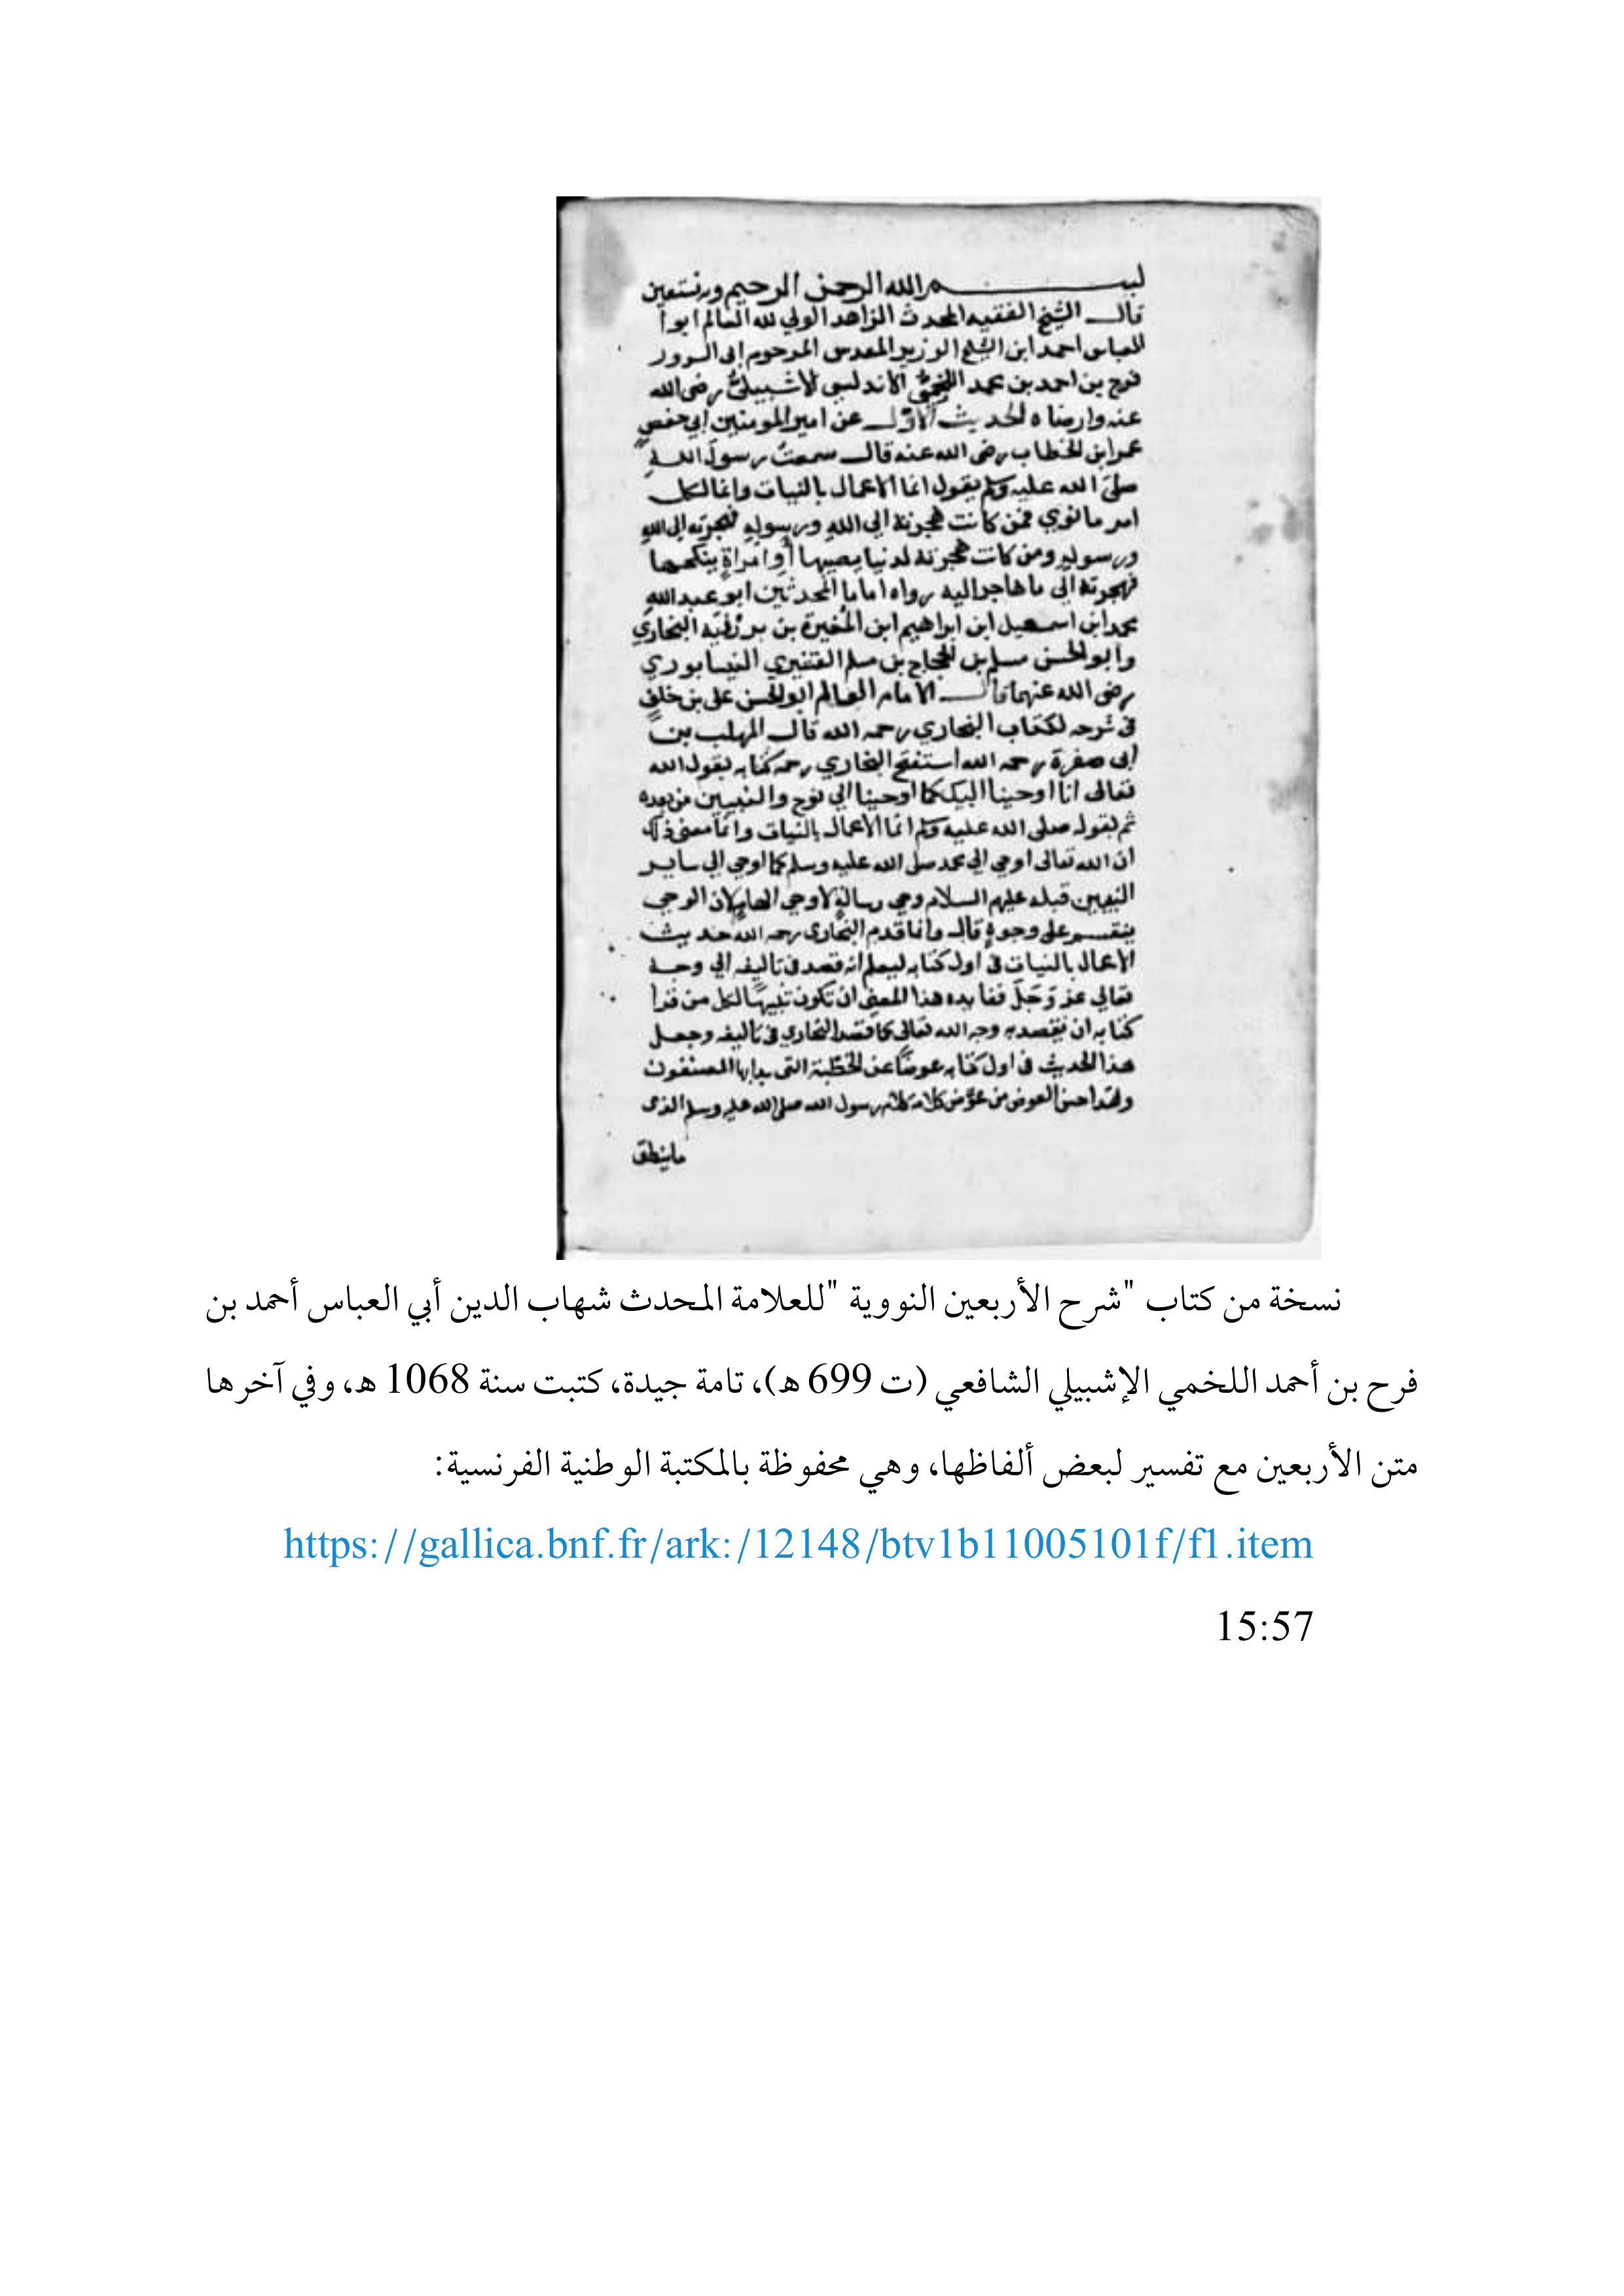 بسم الله الرحمن الرحيم وبه نستعين
قال الشيخ الفقيه المحدث الزاهد الولي لله العالم ابوا
العباس احمد ابن الشيخ الوزير المقدس المرحوم ابى السرور
فرج بن احمد بن محمد اللخمي الاندلسي الاشبيلي رضى الله
عنه وارضاه الحديث الاول عن امير المومنين ابي حفص
عمر ابن الخطاب رضى الله عنه قال سمعت رسول الله
صلى الله عليه وسلم يقول انما الاعمال بالنيات وانما لكل
امر ما نوي فمن كانت هجرته الي الله ورسوله فهجرته الى الله
ورسوله ومن كانت هجرته لدنيا يصيبها أو امراة ينكحها
فهجرته الى ما هاجر اليه رواه اماما المحدثين ابو عبد الله
محمد ابن اسمعيل ابن ابراهيم ابن المغيرة بن بردزبه البخاري
وابو الحسن مسلم بن الحجاج بن مسلم القشيري النيسابوري
رضى الله عنهما قال الامام العالم ابو الحسن على بن خلف
فى شرحه لكتاب البخاري رحمه الله قال المهلب بن
ابى صفرة رحمه الله استفتح البخاري رحمه كتابه بقول الله
تعالى انا اوحينا اليك كما اوحينا الي نوح والنبيين من بعده
ثم بقوله صلى الله عليه وسلم انما الاعمال بالنيات وانما معنى ذلك
ان الله تعالى اوحي الي محمد صلى الله عليه وسلم كما اوحي الي ساير
النبيين قبله عليهم السلام وحي رسالة لا وحي الهام لان الوحي
ينقسم على وجوه قال وانما قدم البخارى رحمه الله حديث
الاعمال بالنيات فى اول كتابه ليعلم انه قصد فى تاليفه الي وجه
تعالي عز وجل ففايده هذا المعنى ان تكون تنبيها لكل من قرا
كتابه ان يقصد به وجه الله تعالى كما قصد البخاري فى تاليفه وجعل
هذا الحديث فى اول كتابه عوضا عن الخطبة التى يبدا بها المصنفون
ولقد احسن العوض من عوض كلامه كلام رسول الله صلى الله عليه وسلم الذى
ما ينطق
نسخة من كتاب "شرح الأربعين النووية "للعلامة المحدث شهاب الدين أبي العباس أحمد بن
فرح بن أحمد اللخمي الإشبيلي الشافعي (ت 699 ه)، تامة جيدة، كتبت سنة 1068 ه، وفي آخرها
متن الأربعين مع تفسير لبعض ألفاظها، وهي محفوظة بالمكتبة الوطنية الفرنسية:
https://gallica.bnf.fr/ark:/12148/btv1b11005101f/f1.item
15:57